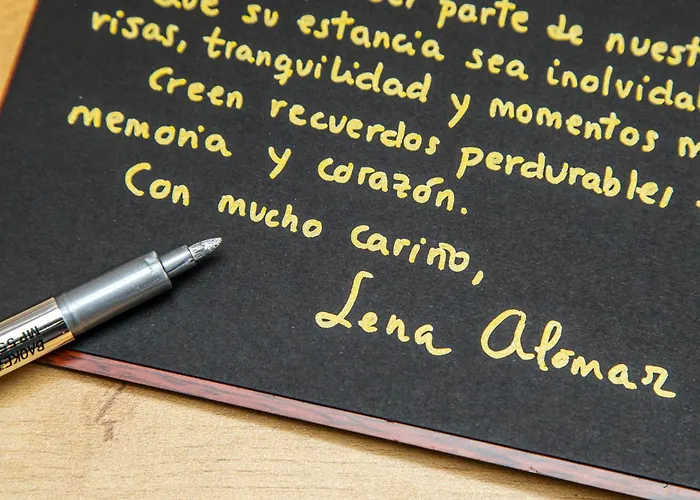 parte de nuest
Que su estancia sea inolvidal
risas, tranquilidad y momentos m
Creen recuerdos perdurables
memoria y corazón.
Con mucho cariño,
Lena Alomar
BAOKE
MP 55